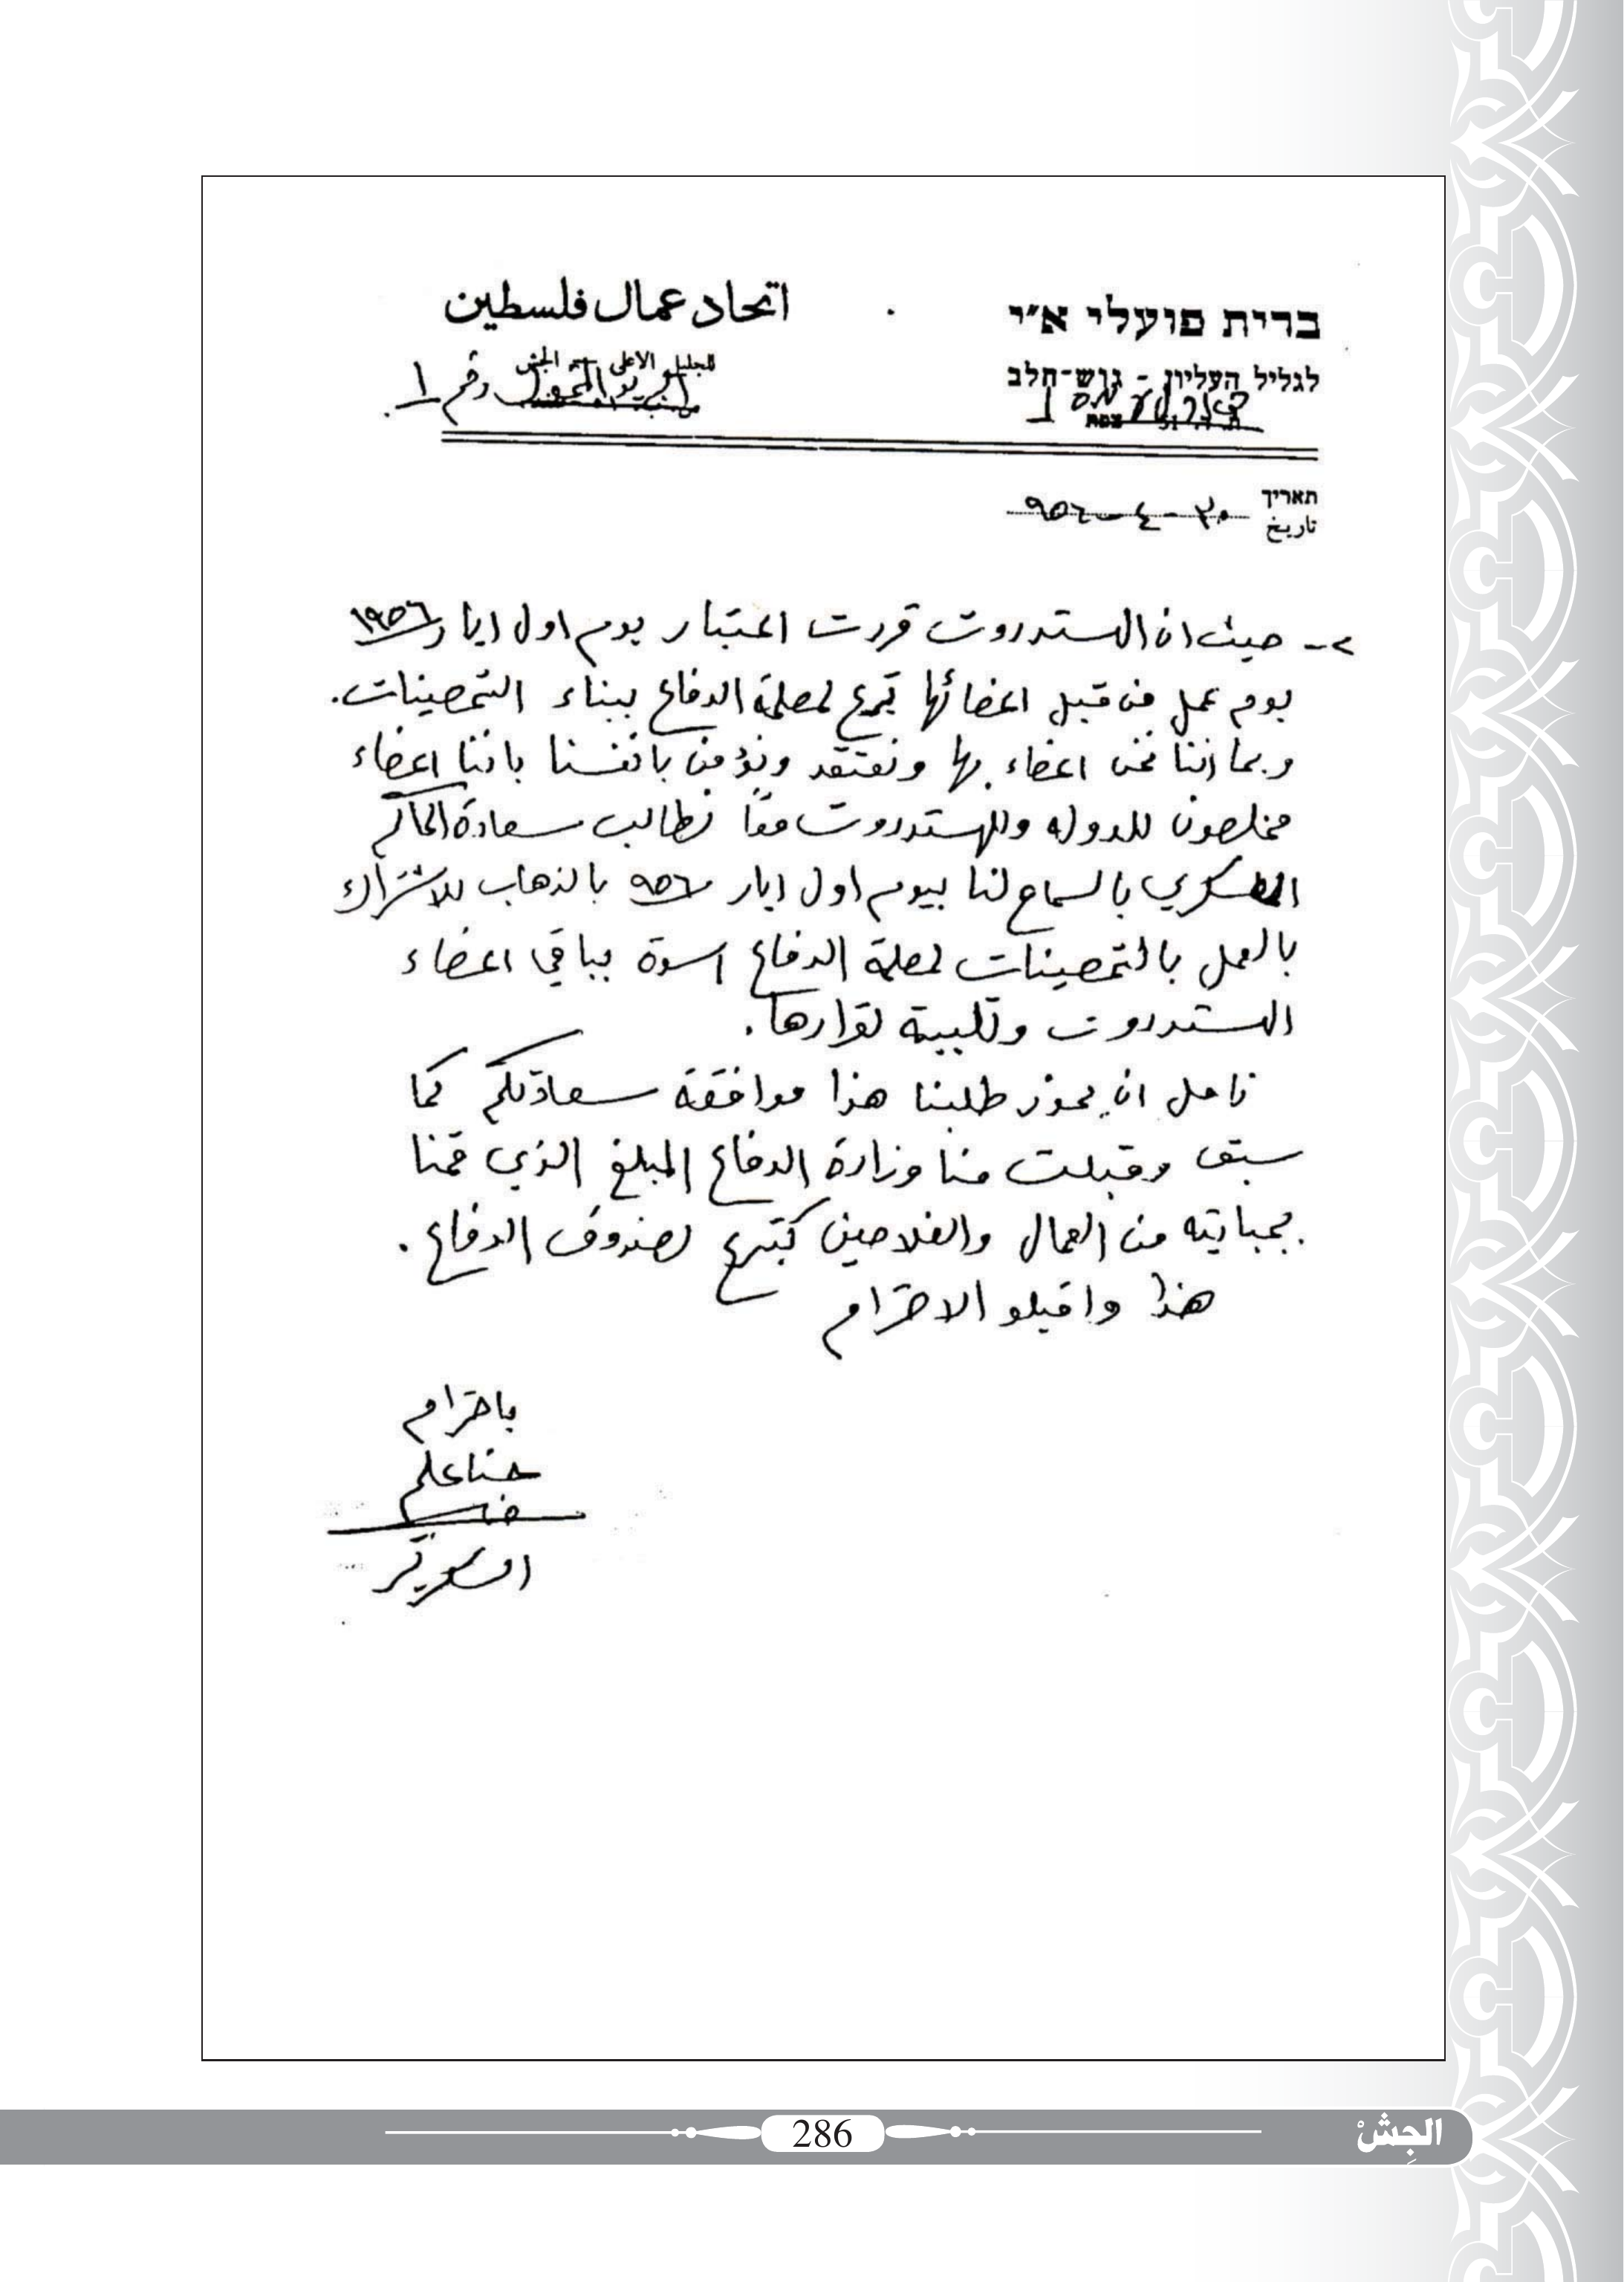 ברית פועלי א״י
اتحاد عمال فلسطين
לגליל העליון - גוש-חלב
للجليل الاعلى - الجش
البريد المتجول رقم ١
ת. ד. 51 צפת
תאריך
تاريخ
٣٠-٤-٩٥٦
٢- حيث ان الهستدروت قررت اعتبار يوم اول ايار ١٩٥٦
يوم عمل من قبل اعضائها تبرع لمصلحة الدفاع ببناء التحصينات.
وبما اننا نحن اعضاء بها ونعتقد ونؤمن بانفسنا باننا اعضاء
مخلصون للدوله وللهستدروت معًا نطالب سعادة الحاكم
العسكري بالسماح لنا بيوم اول ايار ٩٥٦ بالذهاب للاشتراك
بالعمل بالتحصينات لمصلحة الدفاع اسوة بباقي اعضاء
الهستدروت وتلبية لقرارها.
نامل ان يحوز طلبنا هذا موافقة سعادتكم كما
سبق وقبلت منا وزارة الدفاع المبلغ الذي قمنا
بجبايته من العمال والفلاحين كتبرع لصندوق الدفاع.
هذا واقبلو الاحترام
باحترام
حنا علم
السكرتير
286
الجِشْ